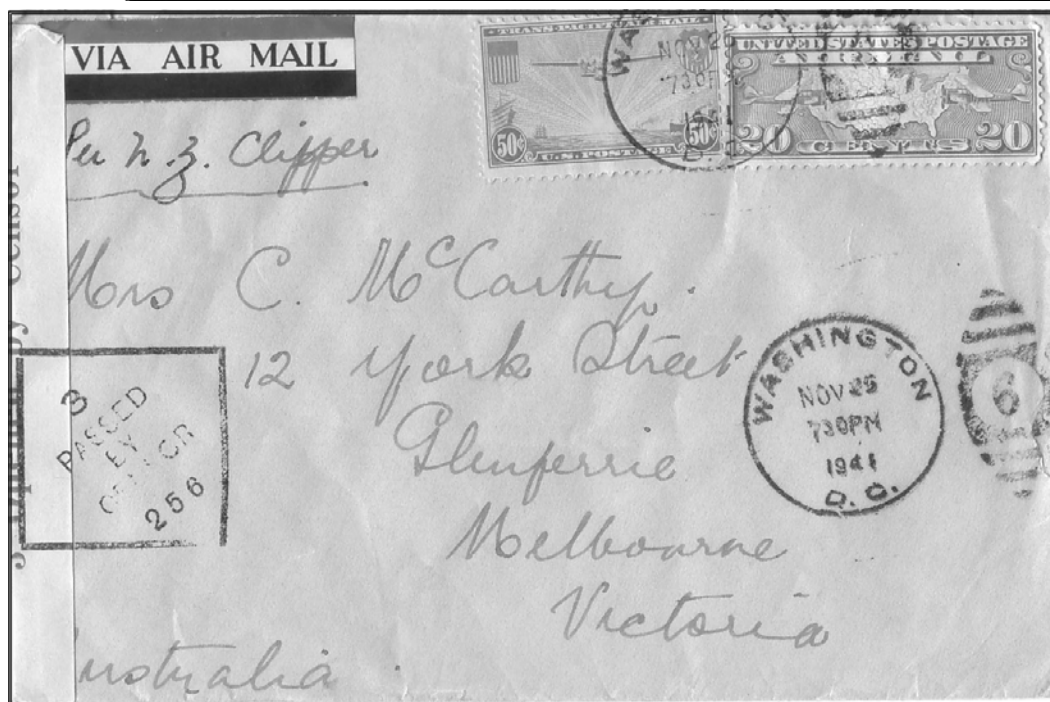 VIA AIR MAIL
TRANS-PACIFIC AIR MAIL
50¢ 50¢
U.S. POSTAGE
UNITED STATES POSTAGE
AIR MAIL
20 CENTS 20
NOV 25
730PM
1941
D. C.
Per N.Z. Clipper
Mrs C. McCarthy.
12 York Street
Glenferrie
Melbourne
Victoria
Australia.
WASHINGTON
NOV 25
730PM
1941
D. C.
6
3
PASSED
BY
CENSOR
256
by censor